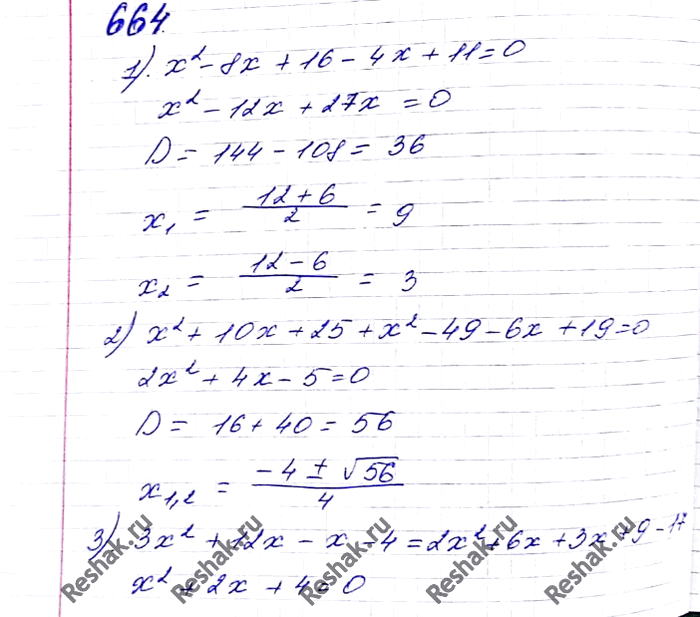 664.
1). x² - 8x + 16 - 4x + 11 = 0
x² - 12x + 27x = 0
D = 144 - 108 = 36
x₁ = (12 + 6)/2 = 9
x₂ = (12 - 6)/2 = 3
2) x² + 10x + 25 + x² - 49 - 6x + 19 = 0
2x² + 4x - 5 = 0
D = 16 + 40 = 56
x₁,₂ = (-4 ± √56)/4
3) 3x² + 12x - x - 4 = 2x² + 6x + 3x + 9 - 17
x² + 2x + 4 = 0
Reshak.ru Reshak.ru Reshak.ru Reshak.ru Reshak.ru